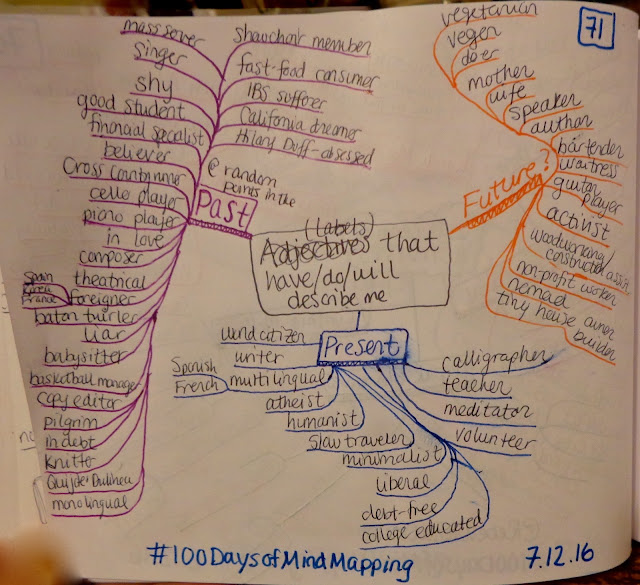 71
(labels)
Adjectives that
have/do/will
describe me
Past
@ random
points in the
mass server
singer
shy
good student
financial specalist
believer
Cross countrunner
cello player
piano player
in love
composer
theatrical
foreigner
Spain
France
baton twirler
liar
babysitter
basketball manager
copy editor
pilgrim
in debt
knitter
monolingual
shawchoir member
fast-food consumer
IBS sufferer
California dreamer
Hilary Duff-obsessed
Future?
vegetarian
vegan
doer
mother
wife
speaker
author
bartender
waitress
guitar
player
activist
woodworking/
construction assist
non-profit worker
nomad
tiny house owner
builder
Present
world citizen
writer
multilingual
Spanish
French
atheist
humanist
slow traveler
minimalist
liberal
debt-free
college educated
calligrapher
teacher
meditator
volunteer
#100DaysofMindMapping
7.12.16